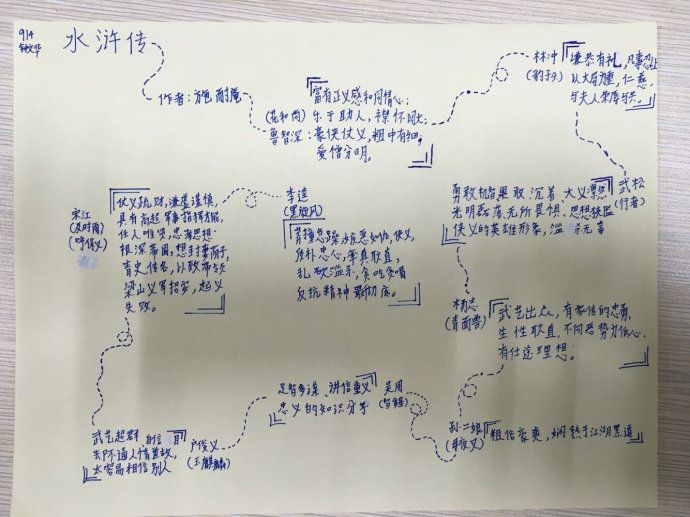 914
水浒传
作者：施耐庵
(花和尚)
鲁智深：
富有正义感和同情心；
乐于助人，襟怀阔大；
豪侠仗义，粗中有细；
爱憎分明。
林冲
(豹子头)
谦恭有礼，凡事忍让
以大局为重，仁慈，
与夫人荣辱与共。
武松
(行者)
勇敢机智果敢、沉着、大义凛然
光明磊落、无所畏惧、思想狭隘
侠义的英雄形象，滥杀无辜
杨志
(青面兽)
武艺出众，有家传的忠勇，
生性耿直，不向恶势力低头，
有仕途理想。
孙二娘
(母夜叉)
粗俗豪爽，娴熟于江湖黑道
吴用
(智多星)
足智多谋、讲信重义
忠义的知识分子
卢俊义
(玉麒麟)
武艺超群、自信
太容易相信别人
宋江
(及时雨)
(呼保义)
仗义疏财，谦虚谨慎，
具有高超军事指挥才能，
任人唯贤，忠君思想
根深蒂固，想封妻荫子，
青史传名，以致带领
梁山义军招安，起义
失败。
李逵
(黑旋风)
莽撞急躁 疾恶如仇，侠义，
质朴忠心，率真耿直，
乱砍滥杀，贪吃贪喝
反抗精神最彻底。